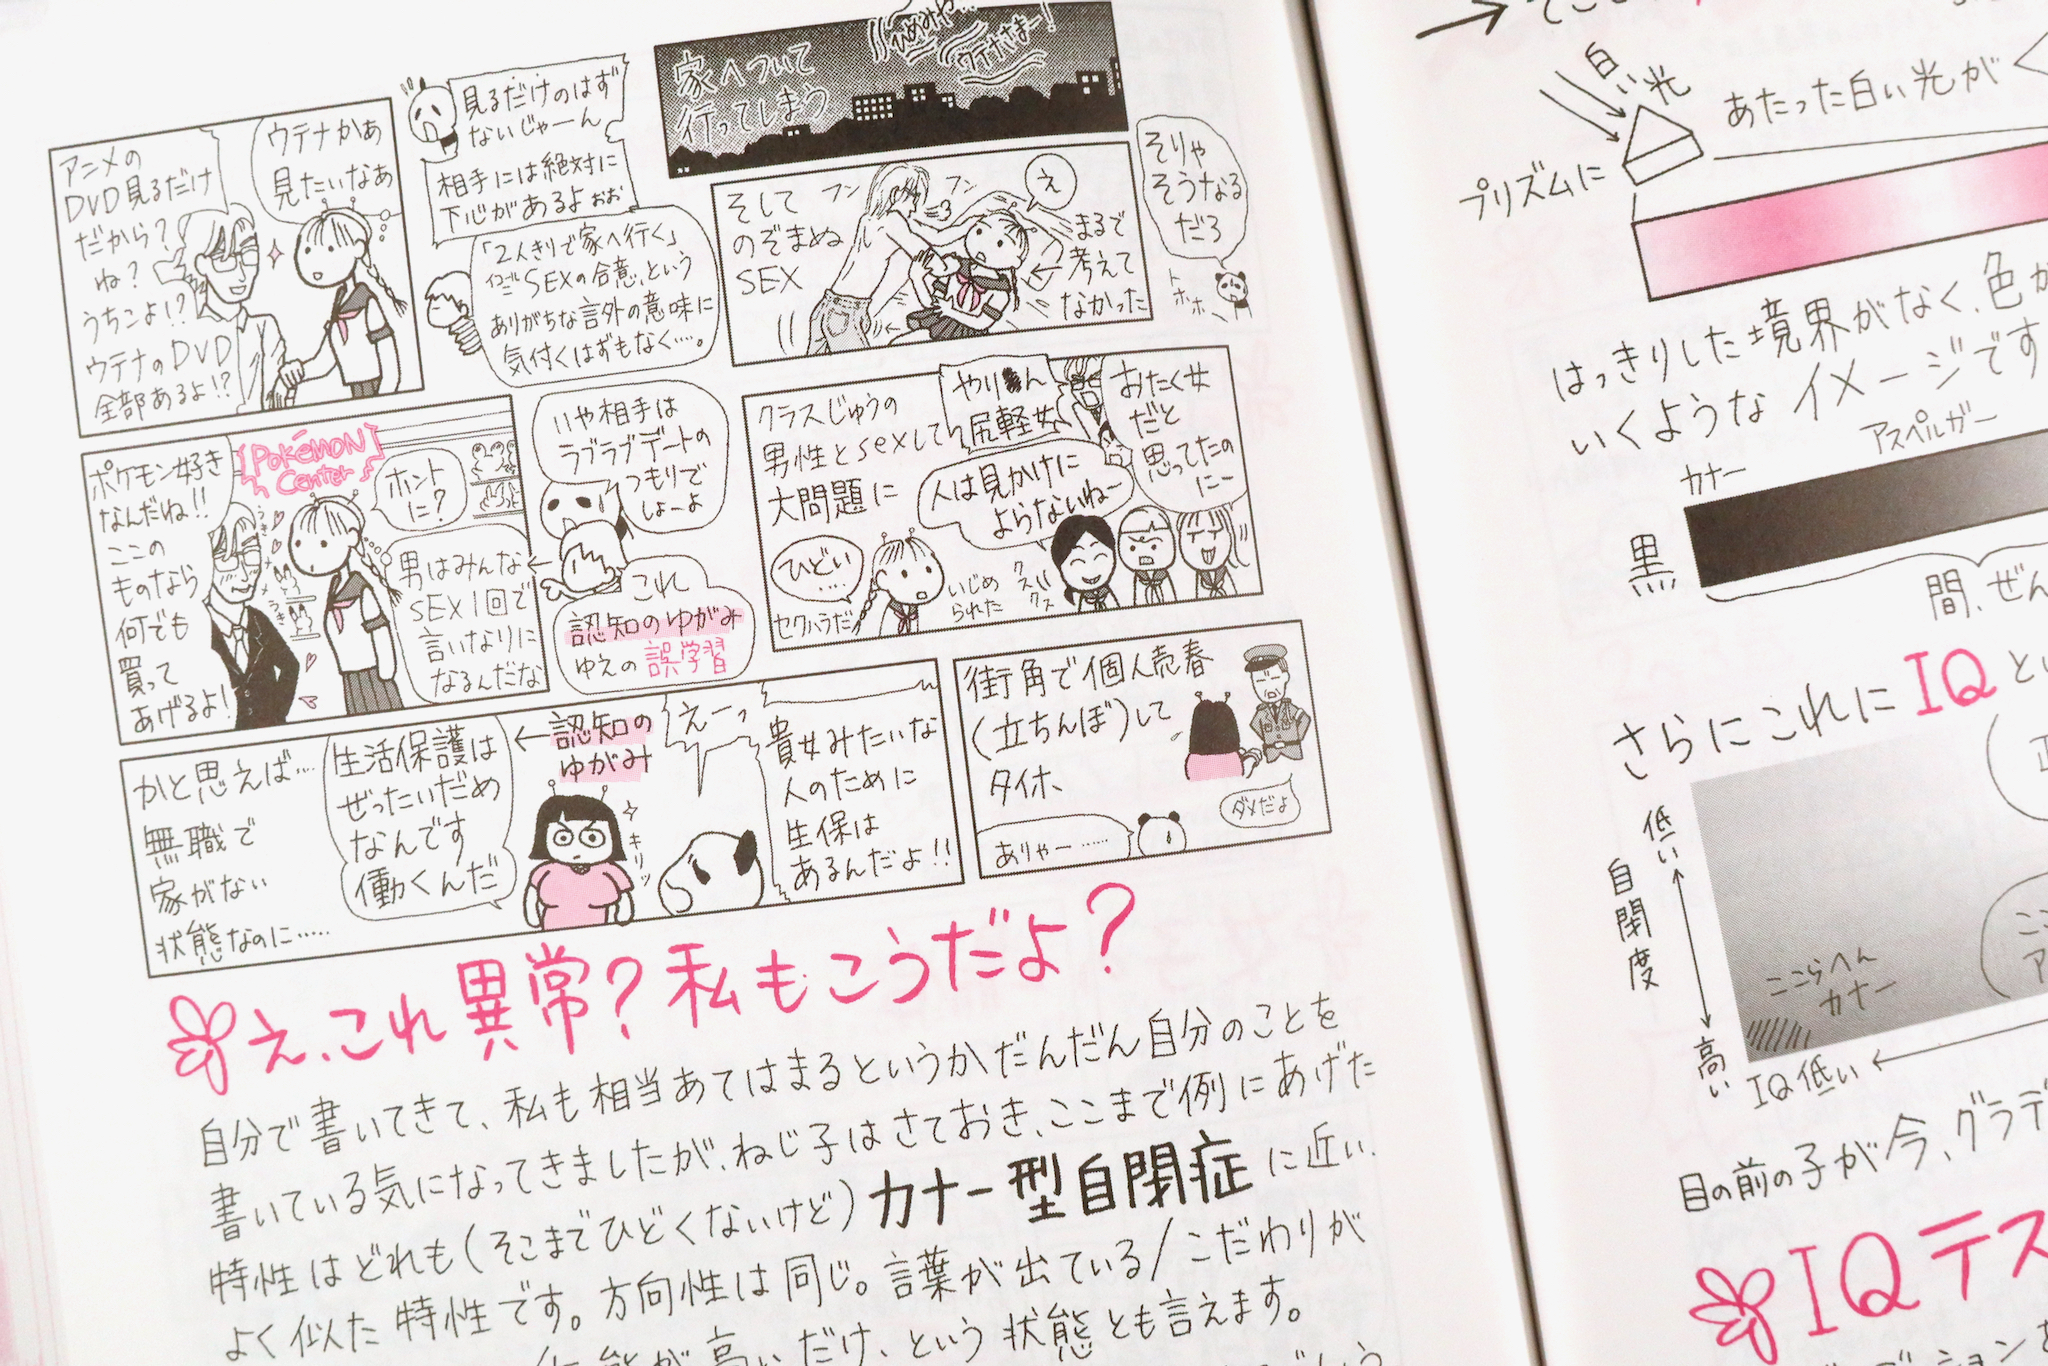 アニメの
DVD見るだけ
だから?
ね?
うちこよ!?
ウテナのDVD
全部あるよ!?
ウテナかぁ
見たいなぁ
見るだけのはず
ないじゃーん
相手には絶対に
下心があるよぉぉ
「2人きりで家へ行く」
SEXの合意、という
ありがちな言外の意味に
気付くはずもなく…。
家へついて
行ってしまう
ウテナさまー!
そして
のぞまぬ
SEX
フン
フン
え
まるで
考えて
なかった
そりゃ
そうなる
だろ
トホホ
ポケモン好き
なんだね!!
ここの
ものなら
何でも
買って
あげるよ!
Pokémon
Center
ホント
に?
男はみんな
SEX1回で
言いなりに
なるんだな
いや相手は
ラブラブデートの
つもりで
しょーよ
これ
認知のゆがみ
ゆえの誤学習
クラスじゅうの
男性とsexして
大問題に
ん
尻軽女
おたく女
だと
思ってたの
にー
人は見かけに
よらないねー
ひどい
…
セクハラだ
いじめ
られた
クスクス
かと思えば…
無職で
家がない
状態なのに……
生活保護は
ぜったいだめ
なんです
働くんだ
←認知の
ゆがみ
キリッ
えーっ
貴女みたいな
人のために
生保は
あるんだよ!!
街角で個人売春
(立ちんぼ)して
タイホ
ダメだよ
ありゃー……
え、これ異常?私もこうだよ?
自分で書いてきて、私も相当あてはまるというかだんだん自分のことを
書いている気になってきましたが、ねじ子はさておき、ここまで例にあげた
特性はどれも(そこまでひどくないけど)カナー型自閉症に近い、
よく似た特性です。方向性は同じ。言葉が出ている/こだわりが
能が高いだけ、という状態とも言えます。
白い光
プリズムに
あたった白い光が
はっきりした境界がなく、色が
いくようなイメージです
カナー
アスペルガー
黒
間、ぜん
さらにこれにIQとい
低い
自閉度
高い
ここらへん
カナー
IQ低い
目の前の子が今、グラデ
IQテス